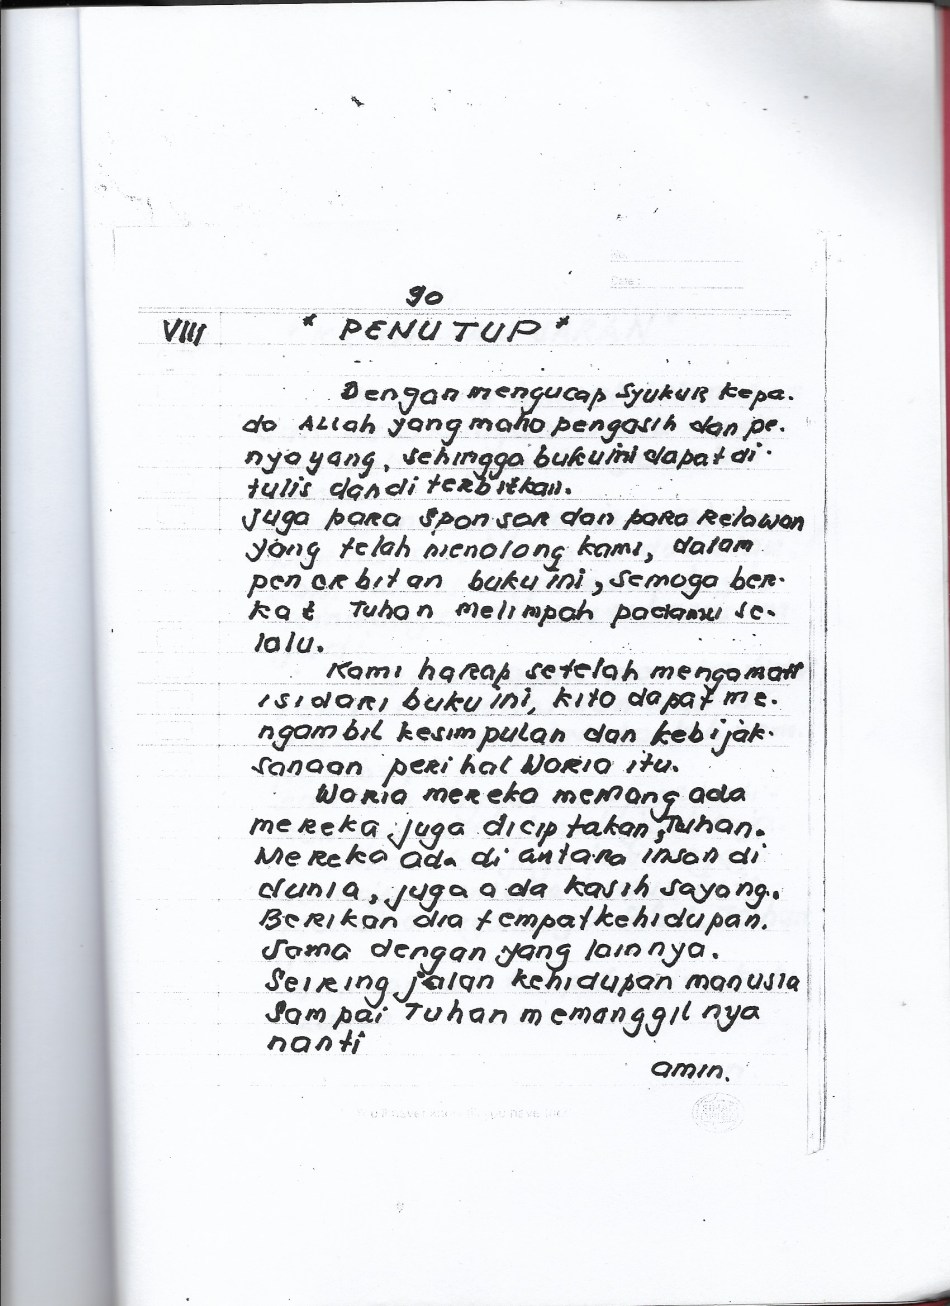 90
VIII * PENUTUP *
Dengan mengucap syukur kepa-
da Allah yang maha pengasih dan pe-
nyayang, sehingga buku ini dapat di-
tulis dan di terbitkan.
Juga para sponsor dan para Relawan
yang telah menolong kami, dalam
penerbitan buku ini, semoga ber-
kat Tuhan melimpah padamu se-
lalu.
Kami harap setelah mengamati
isi dari buku ini, kita dapat me-
ngambil kesimpulan dan kebijak-
sanaan perihal Waria itu.
Waria mereka memang ada
mereka juga diciptakan, Tuhan.
Mereka ada di antara insan di
dunia, juga ada kasih sayang.
Berikan dia tempat kehidupan.
Sama dengan yang lainnya.
Seiring jalan kehidupan manusia
Sampai Tuhan memanggil nya
nanti
amin.